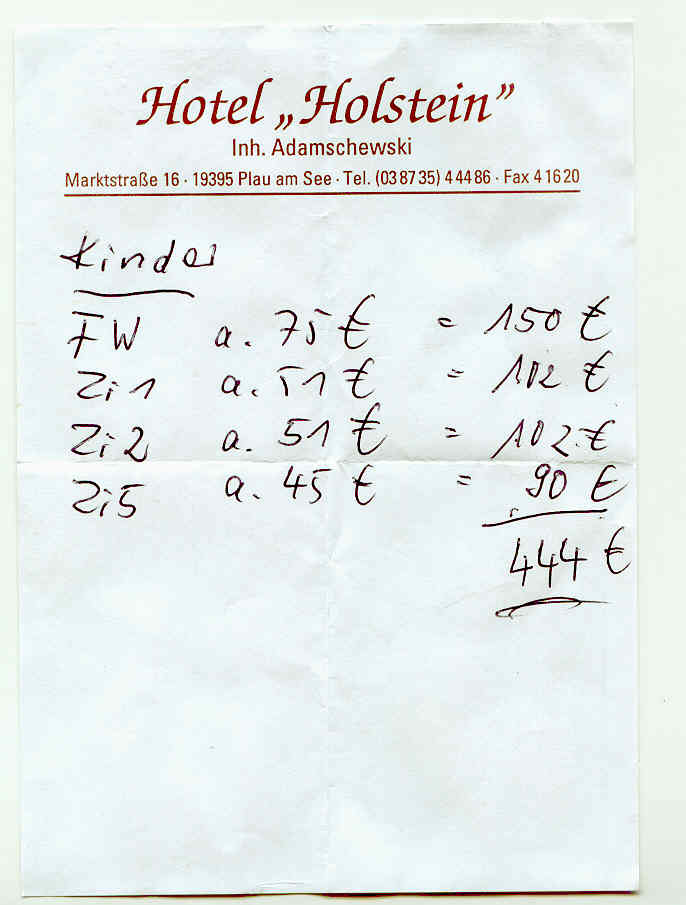 Hotel „Holstein”
Inh. Adamschewski
Marktstraße 16 · 19395 Plau am See · Tel. (03 87 35) 4 44 86 · Fax 4 16 20
Kinder
FW a. 75 € = 150 €
Zi 1 a. 51 € = 102 €
Zi 2 a. 51 € = 102 €
Zi 5 a. 45 € = 90 €
444 €